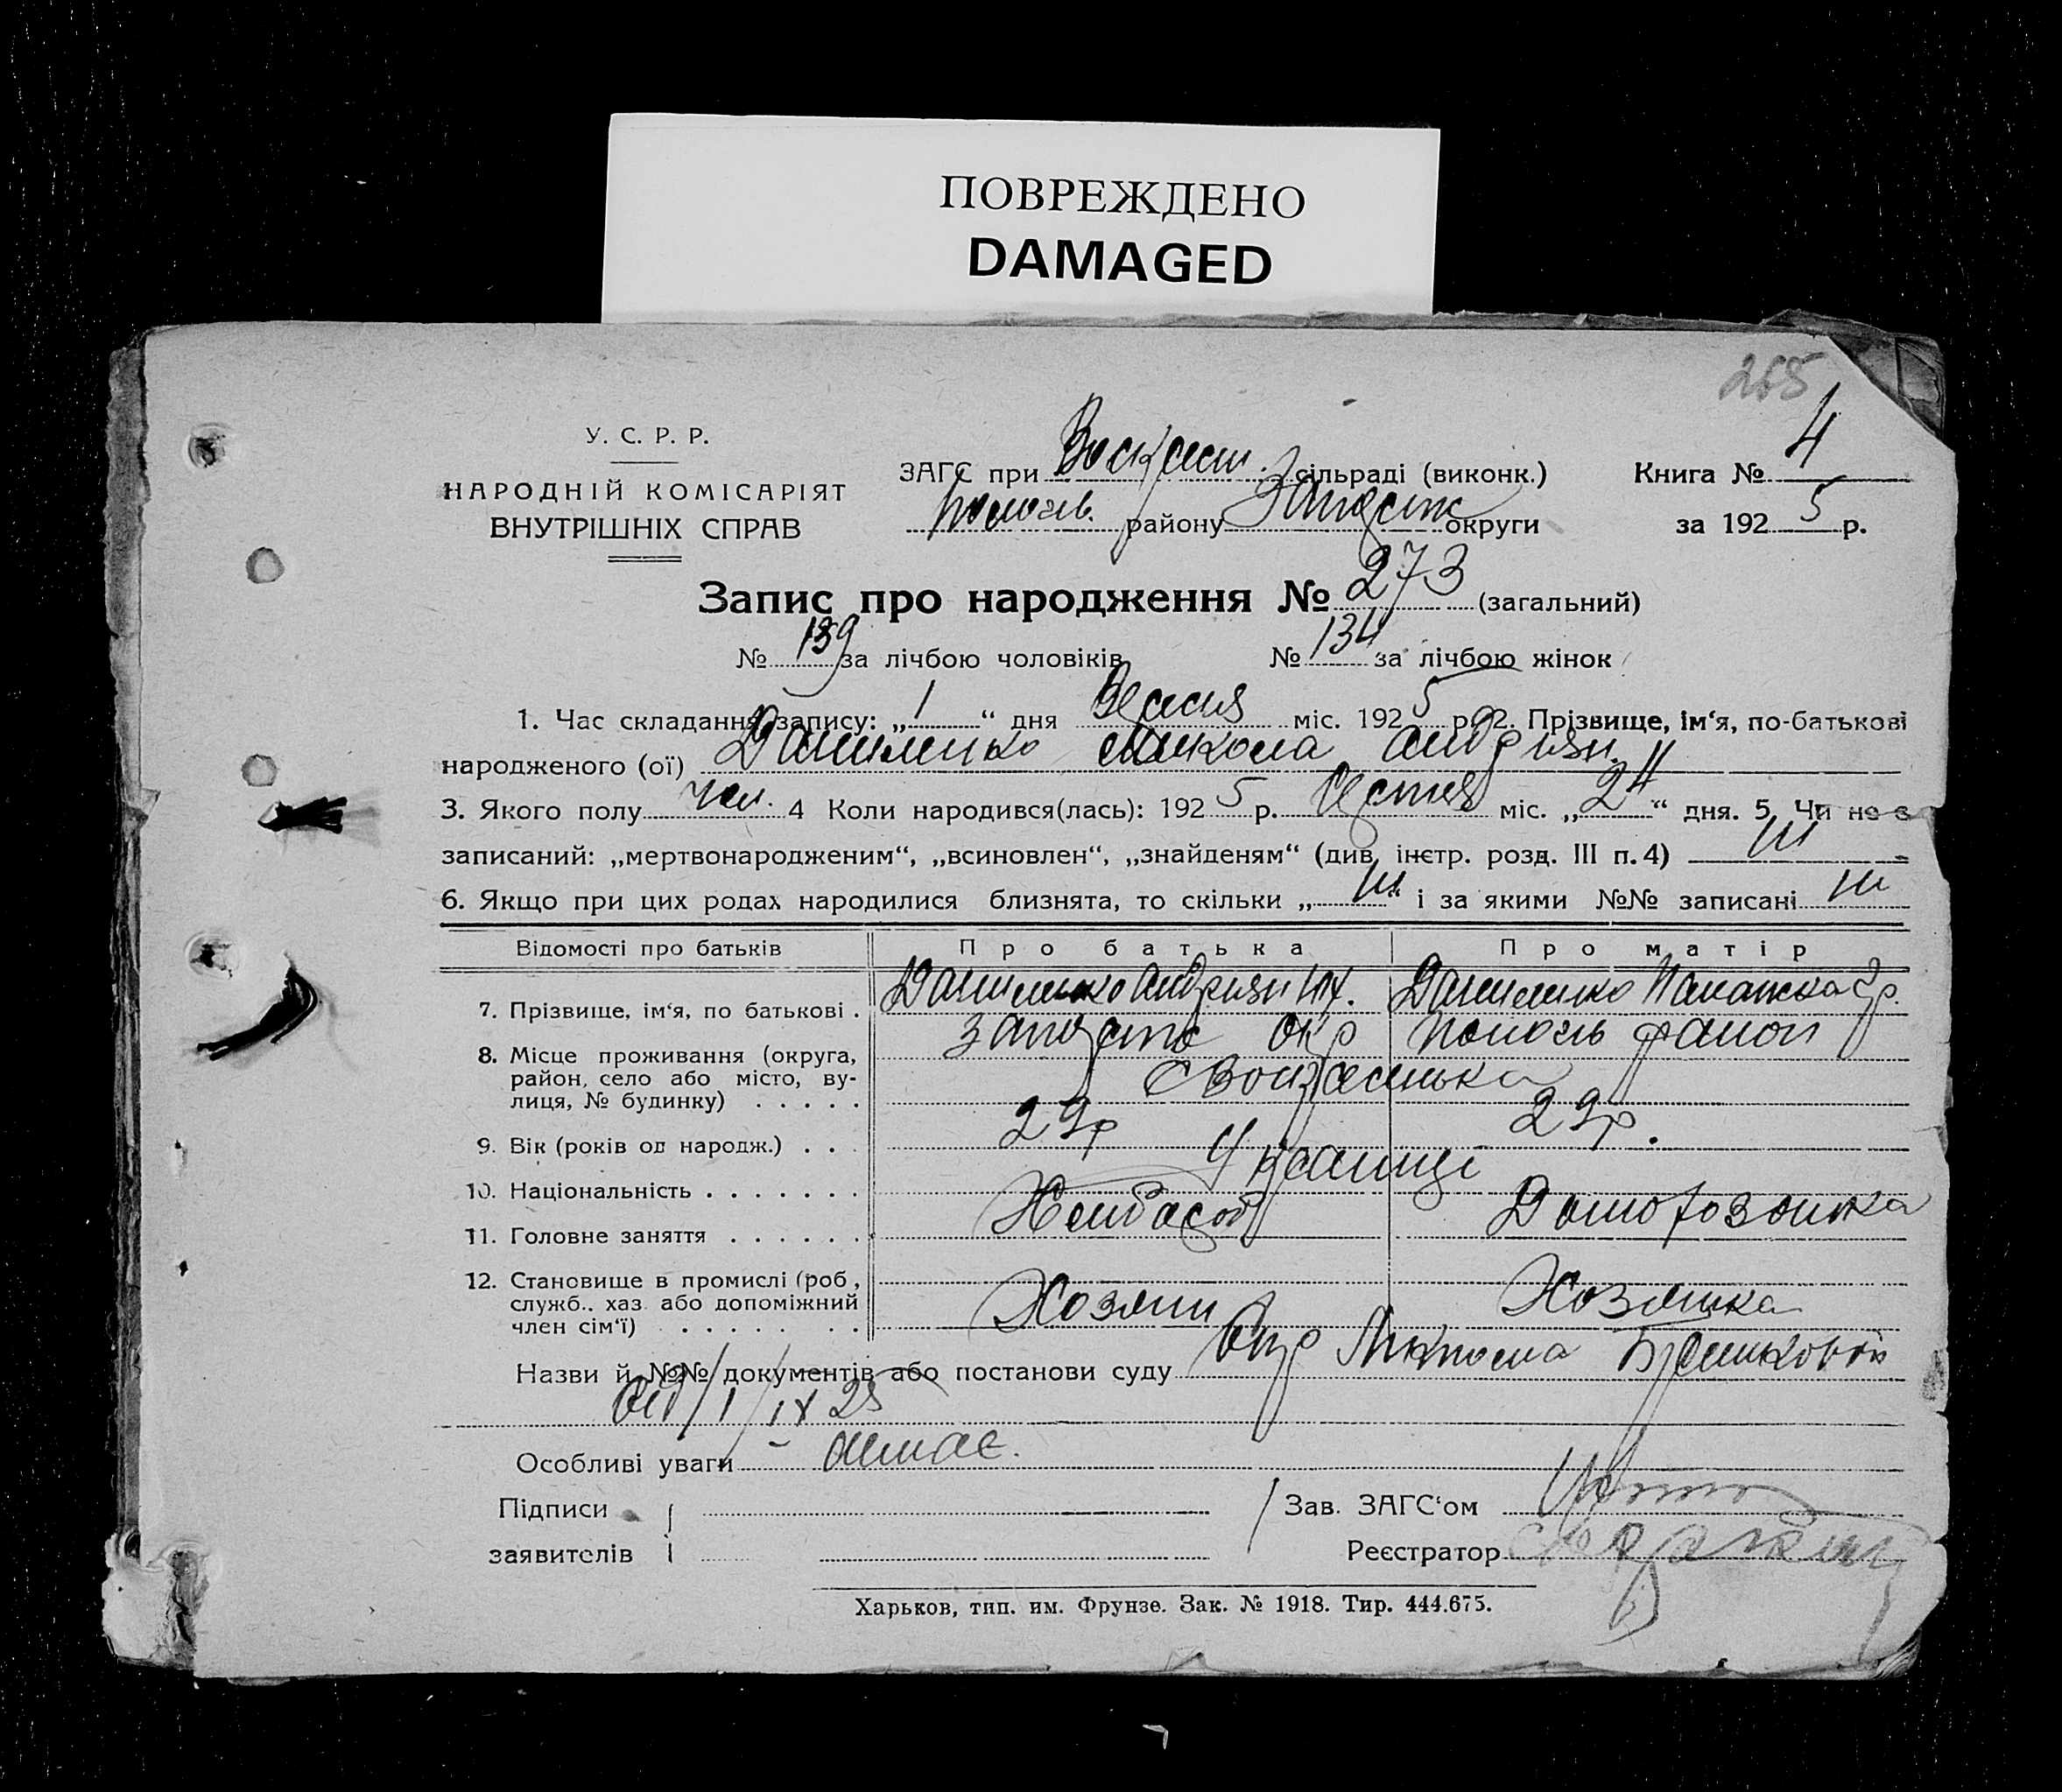 ПОВРЕЖДЕНО
DAMAGED
265
У. С. Р. Р.
НАРОДНІЙ КОМІСАРІЯТ
ВНУТРІШНІХ СПРАВ
ЗАГС при Воскресен. сільраді (виконк.)
Пологів. району Запорізьк округи
Книга № 4
за 1925 р.
Запис про народження № 273 (загальний)
№ 139 за лічбою чоловіків № 134 за лічбою жінок
1. Час складання запису: „1“ дня Вересня міс. 1925 р. 2. Прізвище, ім‘я, по-батькові
народженого (ої) Даниленко Микола Андріян.
3. Якого полу чол. 4 Коли народився(лась): 1925 р. Серпня міс. „24“ дня. 5. Чи не є
записаний: „мертвонародженим“, „всиновлен“, „знайденям“ (див. інстр. розд. III п. 4) ні
6. Якщо при цих родах народилися близнята, то скільки „ні“ і за якими №№ записані ні
Відомості про батьків Про батька Про матір
7. Прізвище, ім‘я, по батькові . Даниленко Андріян Даниленко
8. Місце проживання (округа, район, село або місто, вулиця, № будинку) . . . . . окр район
9. Вік (років од народж.) . . . 29р 29р.
10. Національність . . . . . . . Українці
11. Головне заняття . . . . . . . Хлібороб
12. Становище в промислі (роб, служб.. хаз. або допоміжний член сім‘ї) . . . . . . . Хозяин Хозяйка
Назви й №№ документів або постанови суду
від 1/IX 25
Особливі уваги - немає.
Підписи
заявителів
Зав. ЗАГС‘ом
Реєстратор
Харьков, тип. им. Фрунзе. Зак. № 1918. Тир. 444.675.